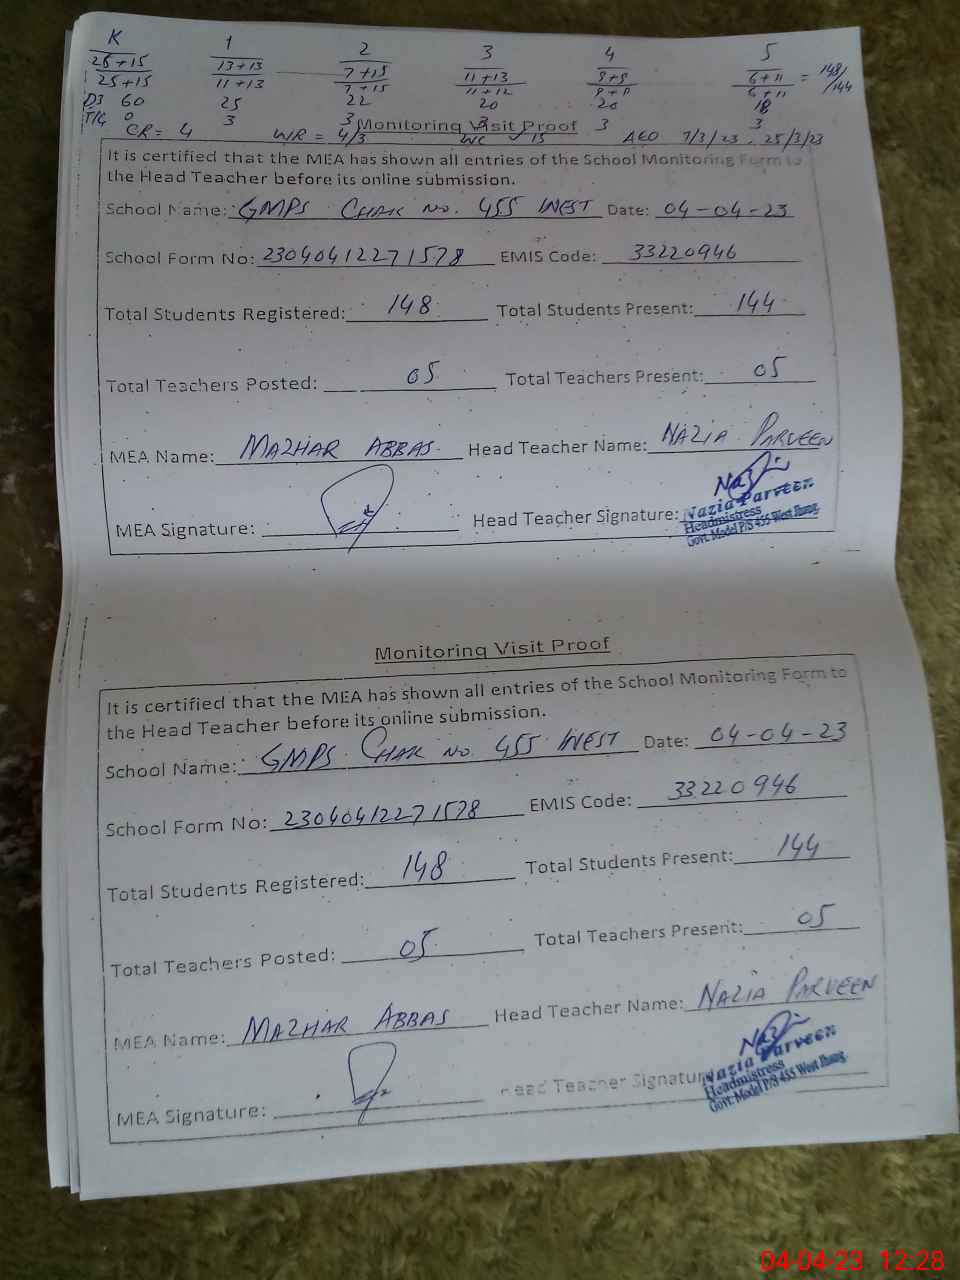 K 1 2 3 4 5
25+15 13+13 7+15 11+13 9+9 6+11 = 148/
25+15 11+13 7+15 11+12 9+11 6+11 144
D3 60 25 22 20 20 18
T/G 0 3 3 3 3 3
CR = 4 WR = 4/3 WC 15 AEO 7/3/23 , 25/3/23
Monitoring Visit Proof
It is certified that the MEA has shown all entries of the School Monitoring Form to
the Head Teacher before its online submission.
School Name: GMPS CHAK NO. 455 WEST Date: 04-04-23
School Form No: 23040412271578 EMIS Code: 33220946
Total Students Registered: 148 Total Students Present: 144
Total Teachers Posted: 05 Total Teachers Present: 05
MEA Name: MAZHAR ABBAS Head Teacher Name: NAZIA PARVEEN
MEA Signature: Head Teacher Signature:
Nazia Parveen
Headmistress
Govt. Model P/S 455 West Jhang.
Monitoring Visit Proof
It is certified that the MEA has shown all entries of the School Monitoring Form to
the Head Teacher before its online submission.
School Name: GMPS CHAK NO. 455 WEST Date: 04-04-23
School Form No: 23040412271578 EMIS Code: 33220946
Total Students Registered: 148 Total Students Present: 144
Total Teachers Posted: 05 Total Teachers Present: 05
MEA Name: MAZHAR ABBAS Head Teacher Name: NAZIA PARVEEN
MEA Signature: Head Teacher Signature
Nazia Parveen
Headmistress
Govt. Model P/S 455 West Jhang.
04-04-23 12:28